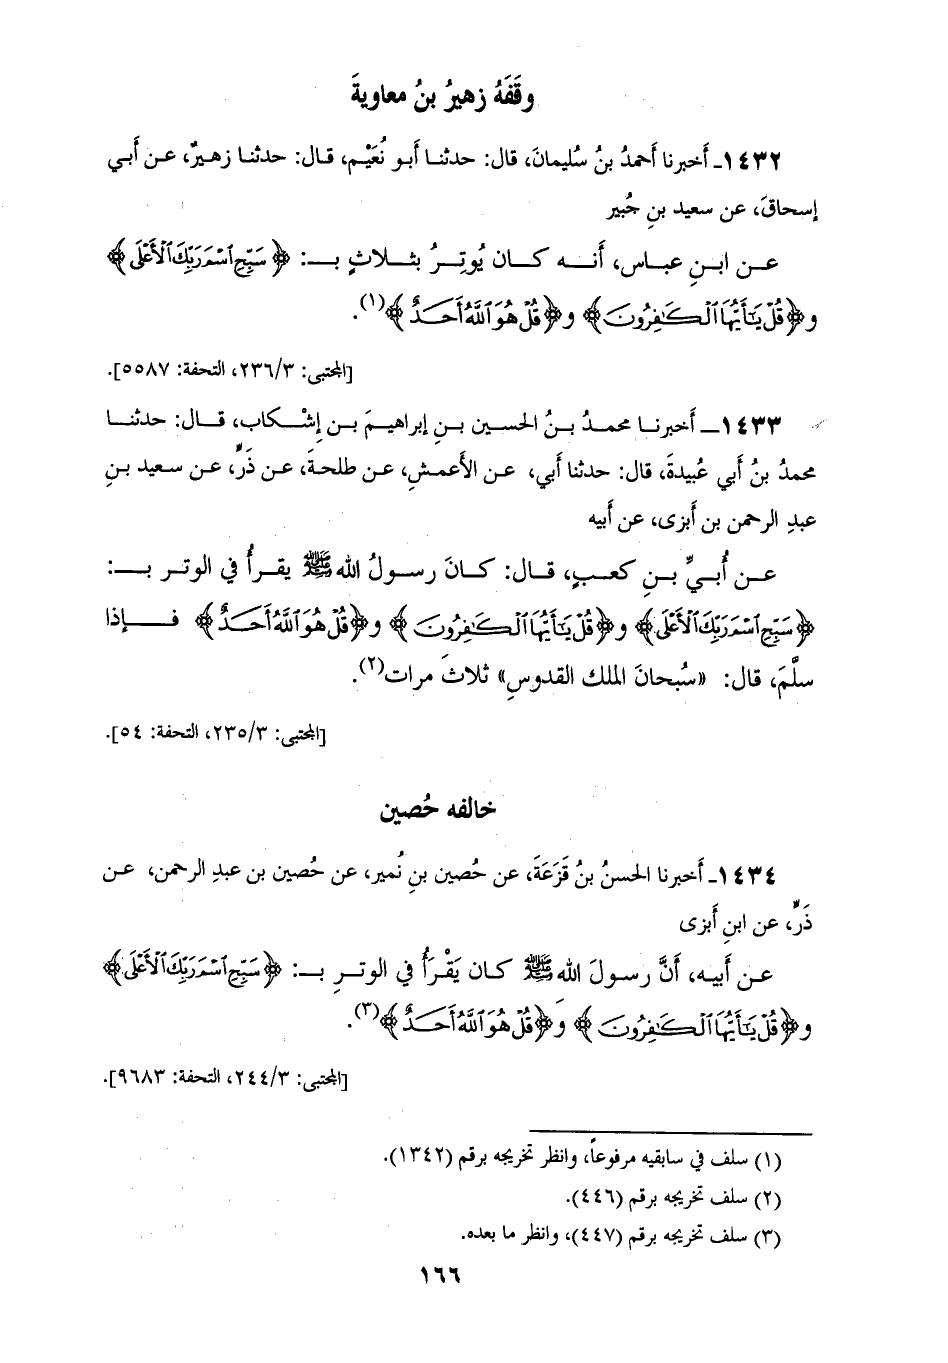 وقَفَهُ زهيرُ بنُ معاويةَ
١٤٣٢ـ أخبرنا أحمدُ بنُ سُليمانَ، قال: حدثنا أبو نُعَيْم، قال: حدثنا زهيرٌ، عن أبي
إسحاقَ، عن سعيد بنِ جُبير
عن ابنِ عباس، أنه كان يُوتِرُ بثلاثٍ بـ: ﴿سَبِّحِ ٱسْمَ رَبِّكَ ٱلْأَعْلَى﴾
و﴿قُلْ يَٰٓأَيُّهَا ٱلْكَٰفِرُونَ﴾ و﴿قُلْ هُوَ ٱللَّهُ أَحَدٌ﴾(١).
[المجتبى: ٢٣٦/٣، التحفة: ٥٥٨٧].
١٤٣٣ـ أخبرنا محمدُ بنُ الحسين بنِ إبراهيمَ بن إشْكاب، قال: حدثنا
محمدُ بنُ أبي عُبيدةَ، قال: حدثنا أبي، عن الأعمشِ، عن طلحةَ، عن ذَرٍّ، عن سعيد بنِ
عبدِ الرحمن بن أبزى، عن أبيه
عن أُبيِّ بنِ كعبٍ، قال: كانَ رسولُ الله ﷺ يقرأُ في الوتر بـ:
﴿سَبِّحِ ٱسْمَ رَبِّكَ ٱلْأَعْلَى﴾ و﴿قُلْ يَٰٓأَيُّهَا ٱلْكَٰفِرُونَ﴾ و﴿قُلْ هُوَ ٱللَّهُ أَحَدٌ﴾ فإذا
سلَّمَ، قال: «سُبحانَ الملك القدوسِ» ثلاثَ مرات(٢).
[المجتبى: ٢٣٥/٣، التحفة: ٥٤].
خالفه حُصين
١٤٣٤ـ أخبرنا الحسنُ بنُ قَزَعَةَ، عن حُصين بنِ نُمير، عن حُصين بن عبدِ الرحمن، عن
ذَرٍّ، عن ابنِ أبزى
عن أبيه، أنَّ رسولَ الله ﷺ كان يَقْرَأُ في الوترِ بـ: ﴿سَبِّحِ ٱسْمَ رَبِّكَ ٱلْأَعْلَى﴾
و﴿قُلْ يَٰٓأَيُّهَا ٱلْكَٰفِرُونَ﴾ و﴿قُلْ هُوَ ٱللَّهُ أَحَدٌ﴾(٣).
[المجتبى: ٢٤٤/٣، التحفة: ٩٦٨٣].
(١) سلف في سابقيه مرفوعاً، وانظر تخريجه برقم (١٣٤٢).
(٢) سلف تخريجه برقم (٤٤٦).
(٣) سلف تخريجه برقم (٤٤٧)، وانظر ما بعده.
١٦٦